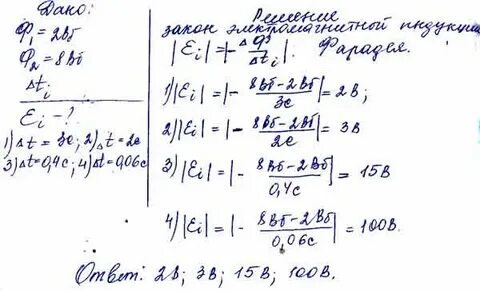 Дано:
Ф₁ = 2Вб
Ф₂ = 8Вб
Δtᵢ
Ɛᵢ - ?
1) Δt = 3с; 2) Δt = 2с
3) Δt = 0,4с; 4) Δt = 0,06с
Решение
закон электромагнитной индукции
|Ɛᵢ| = |- ΔФ/Δtᵢ|. Фарадея.
1) |Ɛᵢ| = |- 8Вб-2Вб/3с| = 2В;
2) |Ɛᵢ| = |- 8Вб-2Вб/2с| = 3В
3) |Ɛᵢ| = |- 8Вб-2Вб/0,4с| = 15В
4) |Ɛᵢ| = |- 8Вб-2Вб/0,06с| = 100В.
Ответ: 2В; 3В; 15В; 100В.